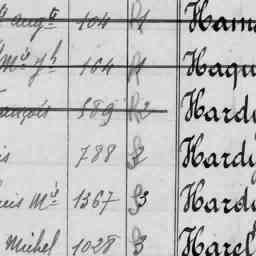 augte 104 R1 Ham
Me Jh 164 R1 Haqu
ançois 589 R2 Hard
is 788 S2 Hardy
uis Me 1367 S3 Hard
Michel 1028 S3 Harel